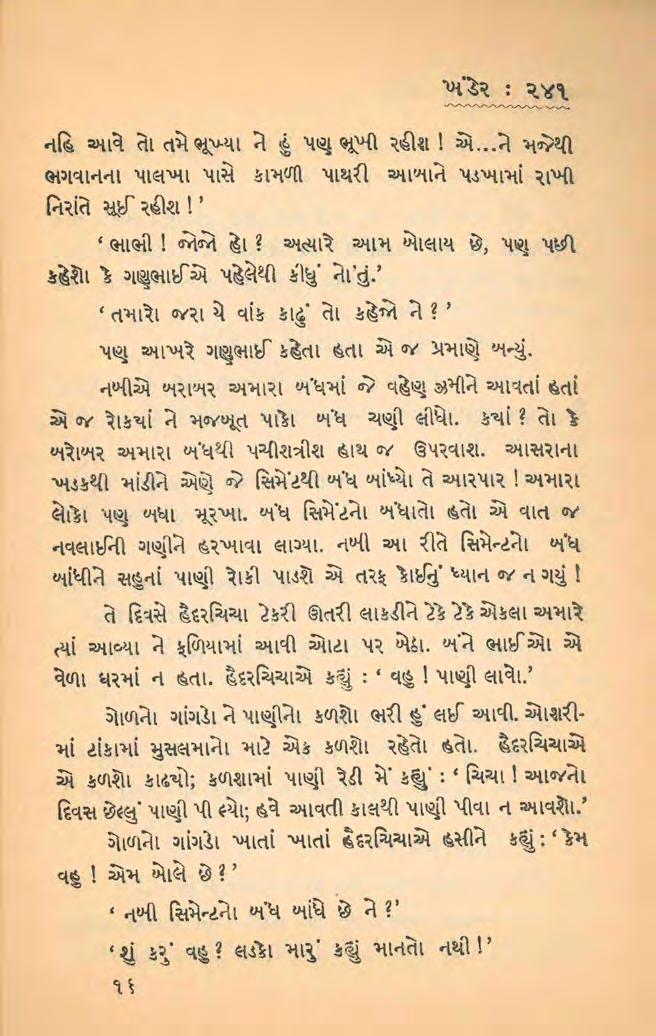 ખંડેર : ૨૪૧
નહિ આવે તો તમે ભૂખ્યા ને હું પણ ભૂખી રહીશ ! એ...ને મજેથી
ભગવાનના પાલખા પાસે કામળી પાથરી આખાને પડખામાં રાખી
નિરાંતે સૂઈ રહીશ ! ’
‘ ભાભી ! જોજો હો ? અત્યારે આમ બોલાય છે, પણ પછી
કહેશો કે ગણુભાઈએ પહેલેથી કીધું નો'તું.’
‘ તમારો જરા યે વાંક કાઢું તો કહેજો ને ? ’
પણ આખરે ગણુભાઈ કહેતા હતા એ જ પ્રમાણે બન્યું.
નબીએ બરાબર અમારા બંધમાં જે વહેણ ઝમીને આવતાં હતાં
એ જ રોકયાં ને મજબૂત પાકો બંધ ચણી લીધો. કયાં ? તો કે
બરોબર અમારા બંધથી પચીશત્રીશ હાથ જ ઉપરવાશ. આસરાના
ખડકથી માંડીને એણે જે સિમેંટથી બંધ બાંધ્યો તે આરપાર ! અમારા
લોકો પણ બધા મૂરખા. બંધ સિમેંટનો બંધાતો હતો એ વાત જ
નવલાઈની ગણીને હરખાવા લાગ્યા. નબી આ રીતે સિમેન્ટનો બંધ
બાંધીને સહુનાં પાણી રોકી પાડશે એ તરફ કોઈનું ધ્યાન જ ન ગયું !
તે દિવસે હૈદરચિચા ટેકરી ઊતરી લાકડીને ટેકે ટેકે એકલા અમારે
ત્યાં આવ્યા ને ફળિયામાં આવી ઓટા પર બેઠા. બંને ભાઈઓ એ
વેળા ઘરમાં ન હતા. હૈદરચિચાએ કહ્યું : ‘ વહુ ! પાણી લાવો.’
ગોળનો ગાંગડો ને પાણીનો કળશો ભરી હું લઈ આવી. ઓશરી-
માં ટાંકામાં મુસલમાનો માટે એક કળશો રહેતો હતો. હૈદરચિચાએ
એ કળશો કાઢયો; કળશામાં પાણી રેડી મેં કહ્યું : ‘ ચિચા ! આજનો
દિવસ છેલ્લું પાણી પી લ્યો; હવે આવતી કાલથી પાણી પીવા ન આવશો.’
ગોળનો ગાંગડો ખાતાં ખાતાં હૈદરચિચાએ હસીને કહ્યું : ‘ કેમ
વહુ ! એમ બોલે છે ? ’
‘ નબી સિમેન્ટનો બંધ બાંધે છે ને ?’
‘શું કરું વહુ ? લડકો મારું કહ્યું માનતો નથી !’
૧૬